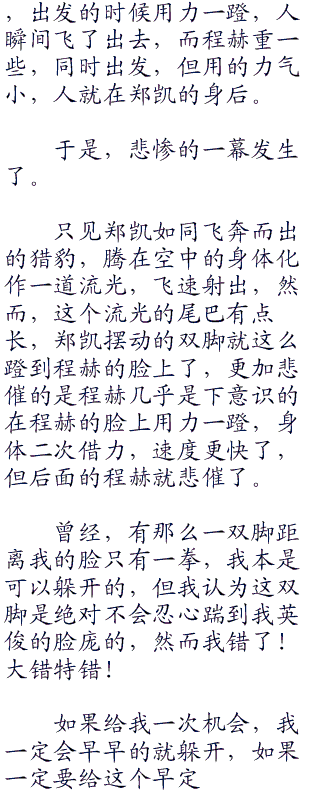 ，出发的时候用力一蹬，人
瞬间飞了出去，而程赫重一
些，同时出发，但用的力气
小，人就在郑凯的身后。
于是，悲惨的一幕发生
了。
只见郑凯如同飞奔而出
的猎豹，腾在空中的身体化
作一道流光，飞速射出，然
而，这个流光的尾巴有点
长，郑凯摆动的双脚就这么
蹬到程赫的脸上了，更加悲
催的是程赫几乎是下意识的
在程赫的脸上用力一蹬，身
体二次借力，速度更快了，
但后面的程赫就悲催了。
曾经，有那么一双脚距
离我的脸只有一拳，我本是
可以躲开的，但我认为这双
脚是绝对不会忍心踹到我英
俊的脸庞的，然而我错了！
大错特错！
如果给我一次机会，我
一定会早早的就躲开，如果
一定要给这个早定